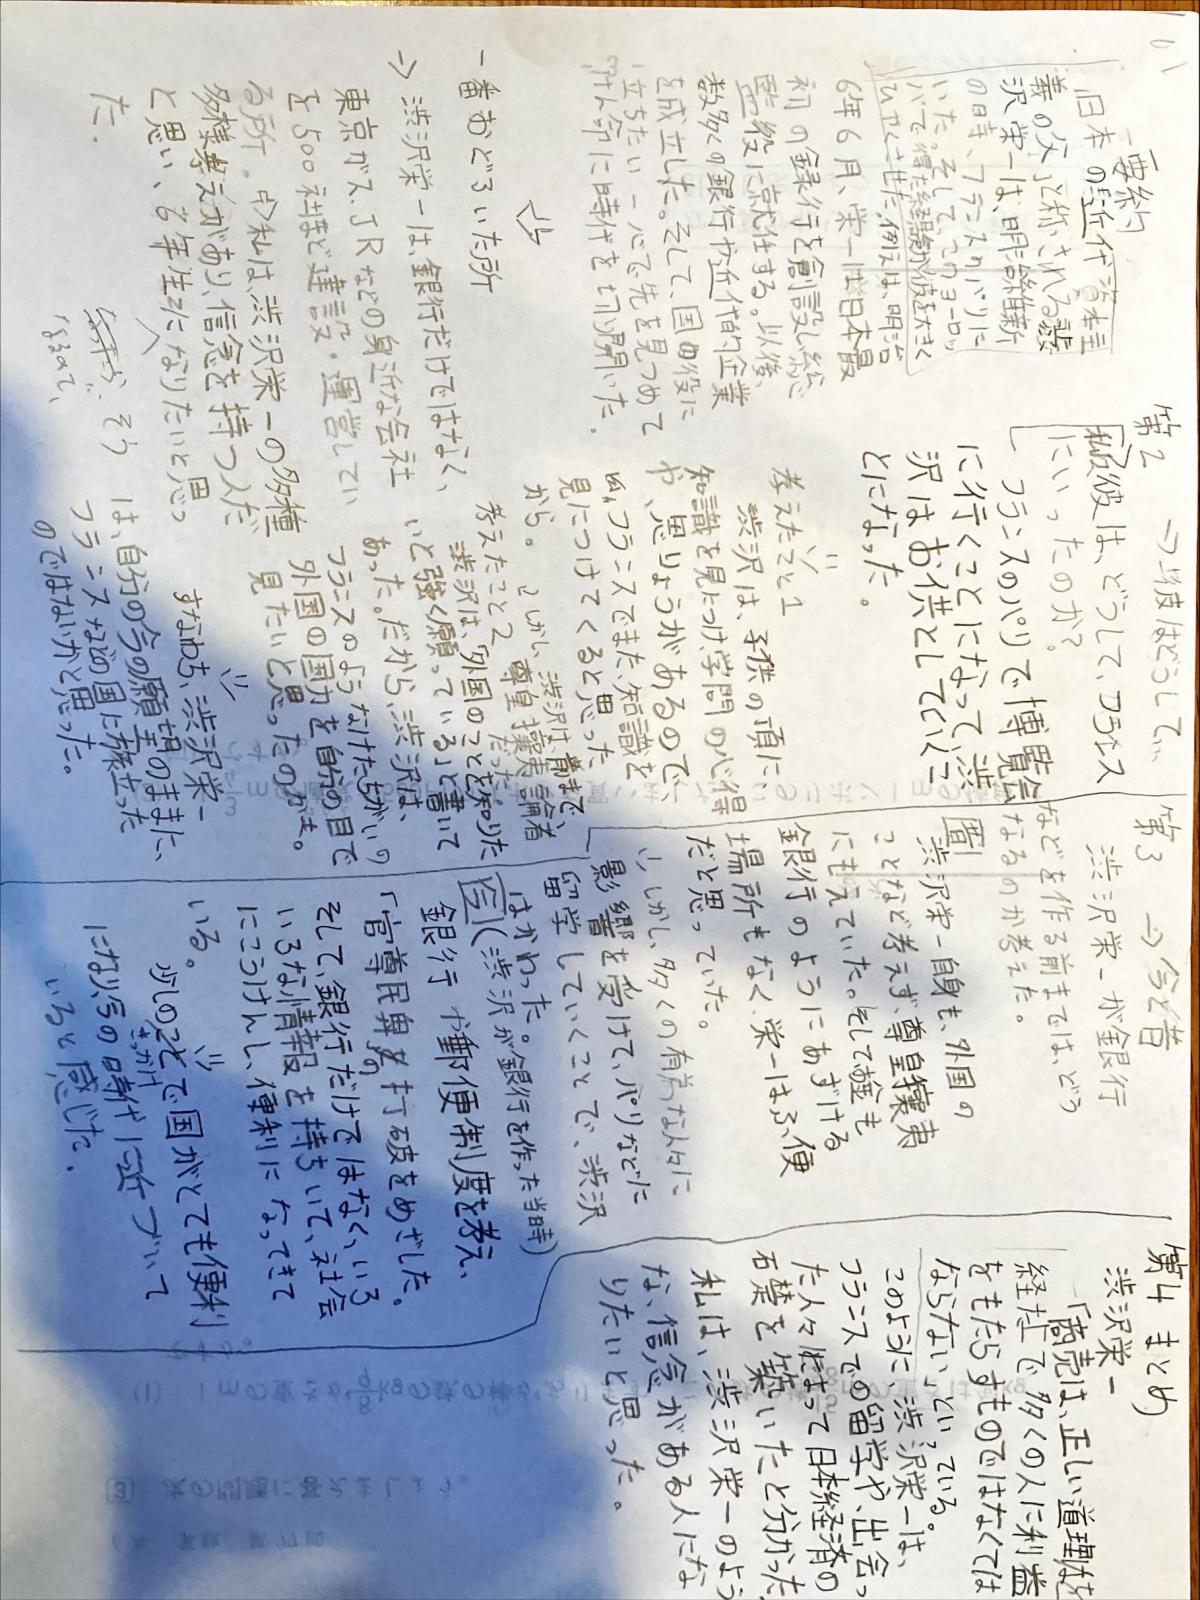 要約
「日本の近代資本主
義の父」と称される渋
沢栄一は、明治維新
の時、フランスのパリに
いた。そして、このヨーロッ
パで得た経験が彼を大きく
ひやくさせた。例えば、明治
6年6月、栄一は日本最
初の銀行を創設し総
監役に就任する。以後、
数多くの銀行や近代的企業
を成立した。そして、国の役に
立ちたい一心で先を見つめて
けん命に時代を切り開いた。
一番おどろいた所
→ 渋沢栄一は、銀行だけではなく、
東京ガス、JRなどの身近な会社
を500社ほど建設・運営してい
る所。私は渋沢栄一の多種
多様考えがあり、信念を持つ人だ
と思い、6年生になりたいと思っ
た。
なったら、そう
なるので、
第2 →彼はどうして、
彼は、どうして、フランス
にいったのか?
フランスのパリで博覧会
に行くことになって渋
沢はお供としていくこ
とになった。
考えたこと1
渋沢は、子供の頃に、
知識を見につけ、学問の心得
や、思りょうがあるので、
フランスでまた、知識を
見につけてくると思った
から。
しかし、渋沢は、前まで、
尊皇攘夷論者
だった。
考えたこと2
渋沢は、「外国のことを知りた
いと強く願っている」と書いて
あった。だから、渋沢は、
フランスのようなけたちがいの
外国の国力を自分の目で
見たいと思ったのかも。
すなわち、渋沢栄一
は、自分の今の願望のままに、
フランスなどの国に旅立った
のではないかと思った。
第3 →今と昔
渋沢栄一が銀行
などを作る前までは、どう
なるのか考えた。
昔
渋沢栄一自身も、外国の
ことなど考えず、尊皇攘夷
にもえていた。そしてお金も
銀行のようにあずける
場所もなく、栄一はふ便
だと思っていた。
しかし、多くの有名な人々に
影響を受けて、パリなどに
留学していくことで、渋沢
はかわった。
今(渋沢が銀行を作った当時)
銀行や郵便制度を考え、
「官尊民卑」の打破をめざした。
そして、銀行だけではなく、いろ
いろな情報を持ちいて、社会
にこうけんし、便利になってきて
いる。
少しのきっかけで国がとても便利
になり、今の時代に近づいて
いると感じた。
第4 まとめ
渋沢栄一
「商売は、正しい道理を
経た上で多くの人に利益
をもたらすものではなくては
ならない」といっている。
このように、渋沢栄一は、
フランスでの留学や、出会っ
た人々によって日本経済の
石礎を築いたと分かった。
私は、渋沢栄一のよう
な、信念がある人にな
りたいと思った。